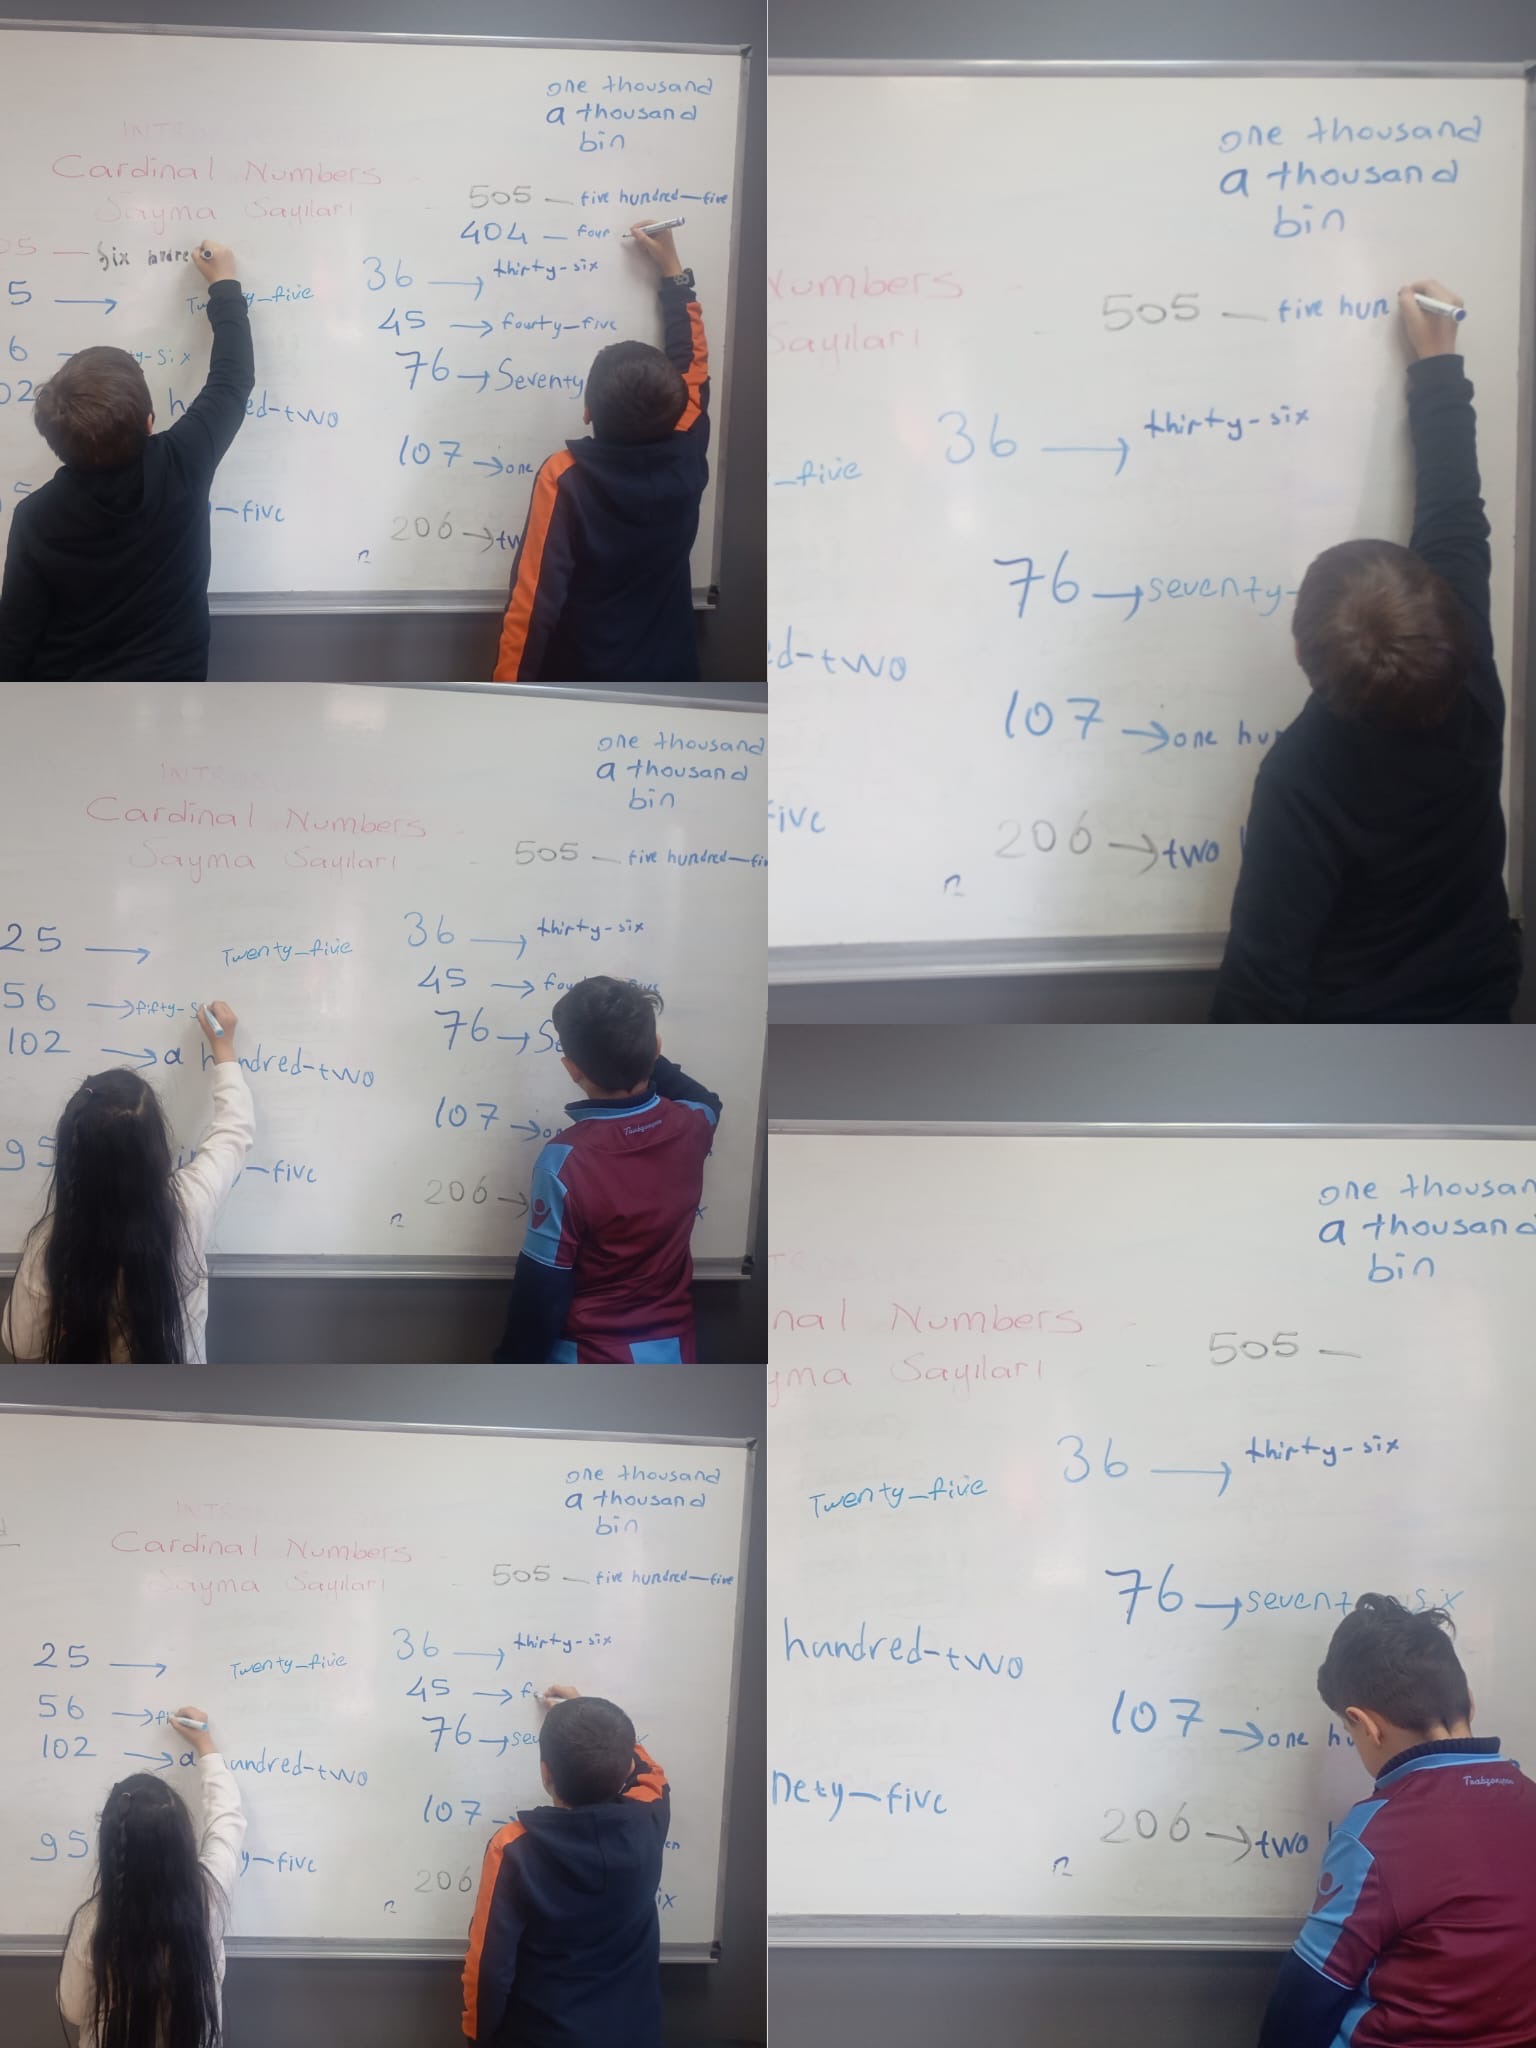 one thousand
a thousand
bin
Cardinal Numbers
Sayma Sayıları
505 — five hundred—five
404 — four
05 — Six
5 →
Twenty_five
36 → thirty-six
45 → fourty_five
6
ty-six
76 → Seventy
02
ed-two
107 → one
—five
206 → tw
one thousand
a thousand
bin
Numbers
Sayıları
505 — five hun
36 → thirty-six
_five
76 → seventy-
d-two
107 → one hu
five
206 → two
one thousand
a thousand
bin
Cardinal Numbers
Sayma Sayıları
505 — five hundred—fiv
25 → Twenty_five
36 → thirty-six
56 → fifty-s
45 → fou
102 → a hundred-two
76 → Se
107 → on
95
—five
Trabzonspor
206 →
one thousan
a thousand
bin
nal Numbers
yma Sayıları
505 —
36 → thirty-six
Twenty_five
76 → sevent six
hundred-two
107 → one hu
nety—five
Trabzonspor
206 → two
one thousand
a thousand
bin
Cardinal Numbers
Sayma Sayıları
505 — five hundred—five
25 → Twenty_five
36 → thirty-six
56 → fi
45 → fo
102 → a hundred-two
76 → sev
107
en
95
y—five
206
ix